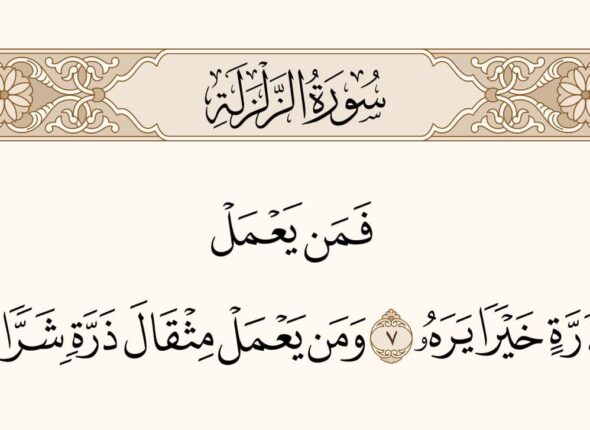 سُورَةُ الزَّلْزَلَةِ
فَمَن يَعۡمَلۡ
ذَرَّةٍ خَيۡرٗا يَرَهُۥ ٧ وَمَن يَعۡمَلۡ مِثۡقَالَ ذَرَّةٖ شَرّٗا